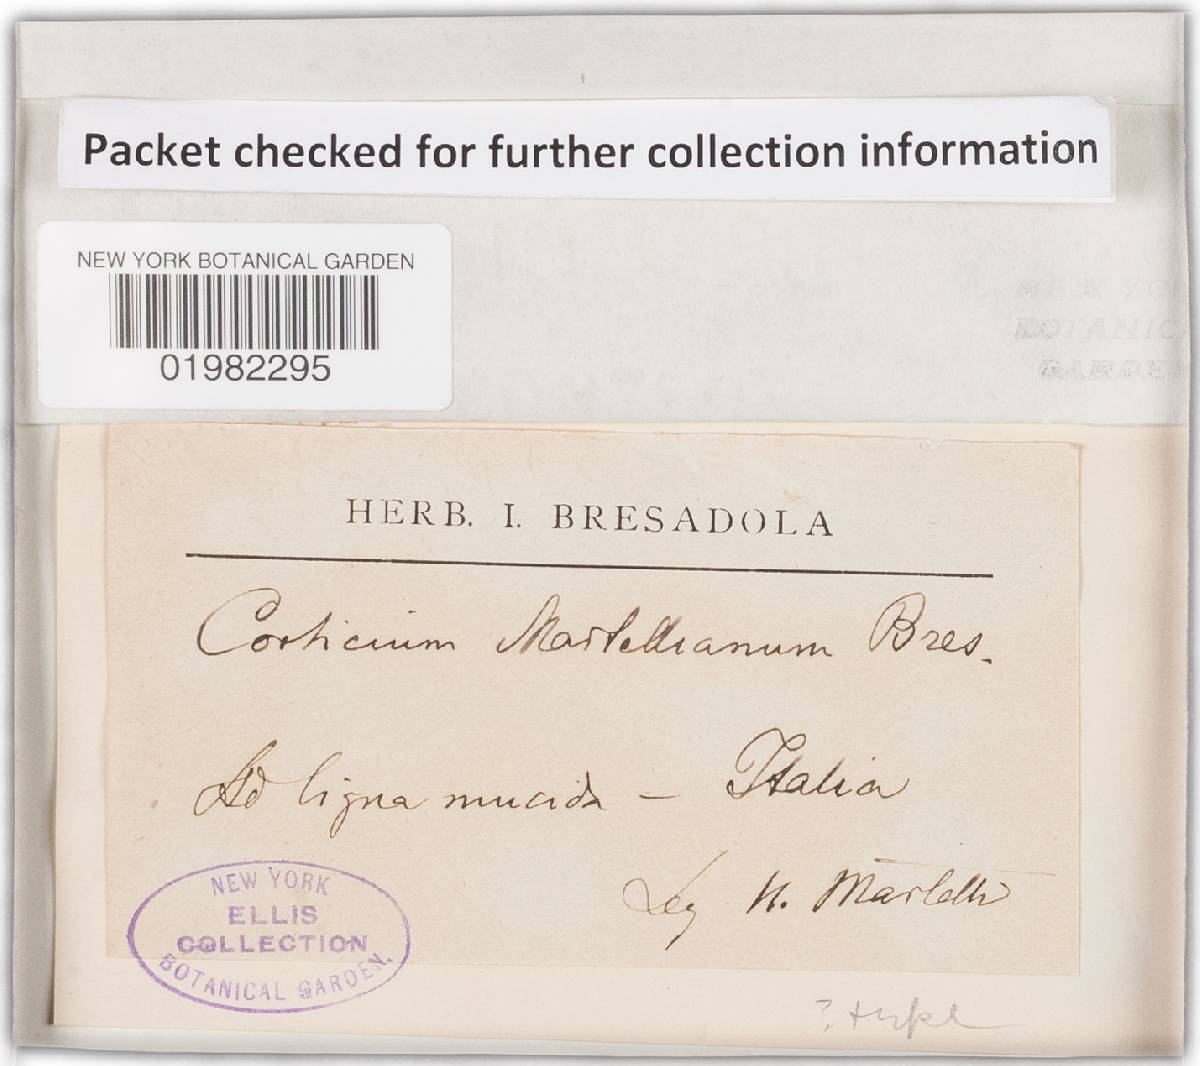 Packet checked for further collection information
NEW YORK BOTANICAL GARDEN
01982295
HERB. I. BRESADOLA
Corticium Martellianum Bres.
Ad ligna mucida – Italia
Leg U. Martelli
NEW YORK
ELLIS
COLLECTION
BOTANICAL GARDEN.
?